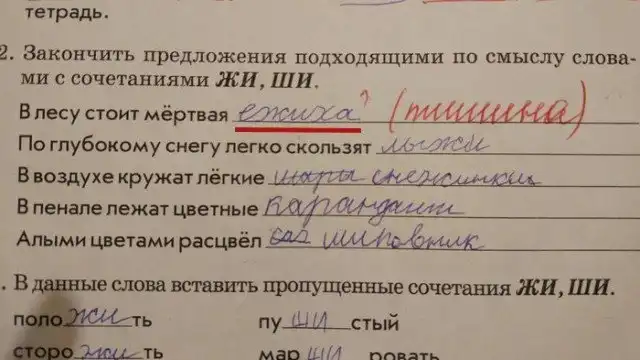 тетрадь.
2. Закончить предложения подходящими по смыслу слова-
ми с сочетаниями ЖИ, ШИ.
В лесу стоит мёртвая ежиха ? (тишина)
По глубокому снегу легко скользят лыжи
В воздухе кружат лёгкие шары снежинки
В пенале лежат цветные карандаши
Алыми цветами расцвёл шиповник
. В данные слова вставить пропущенные сочетания ЖИ, ШИ.
положить пушистый
сторожить маршировать